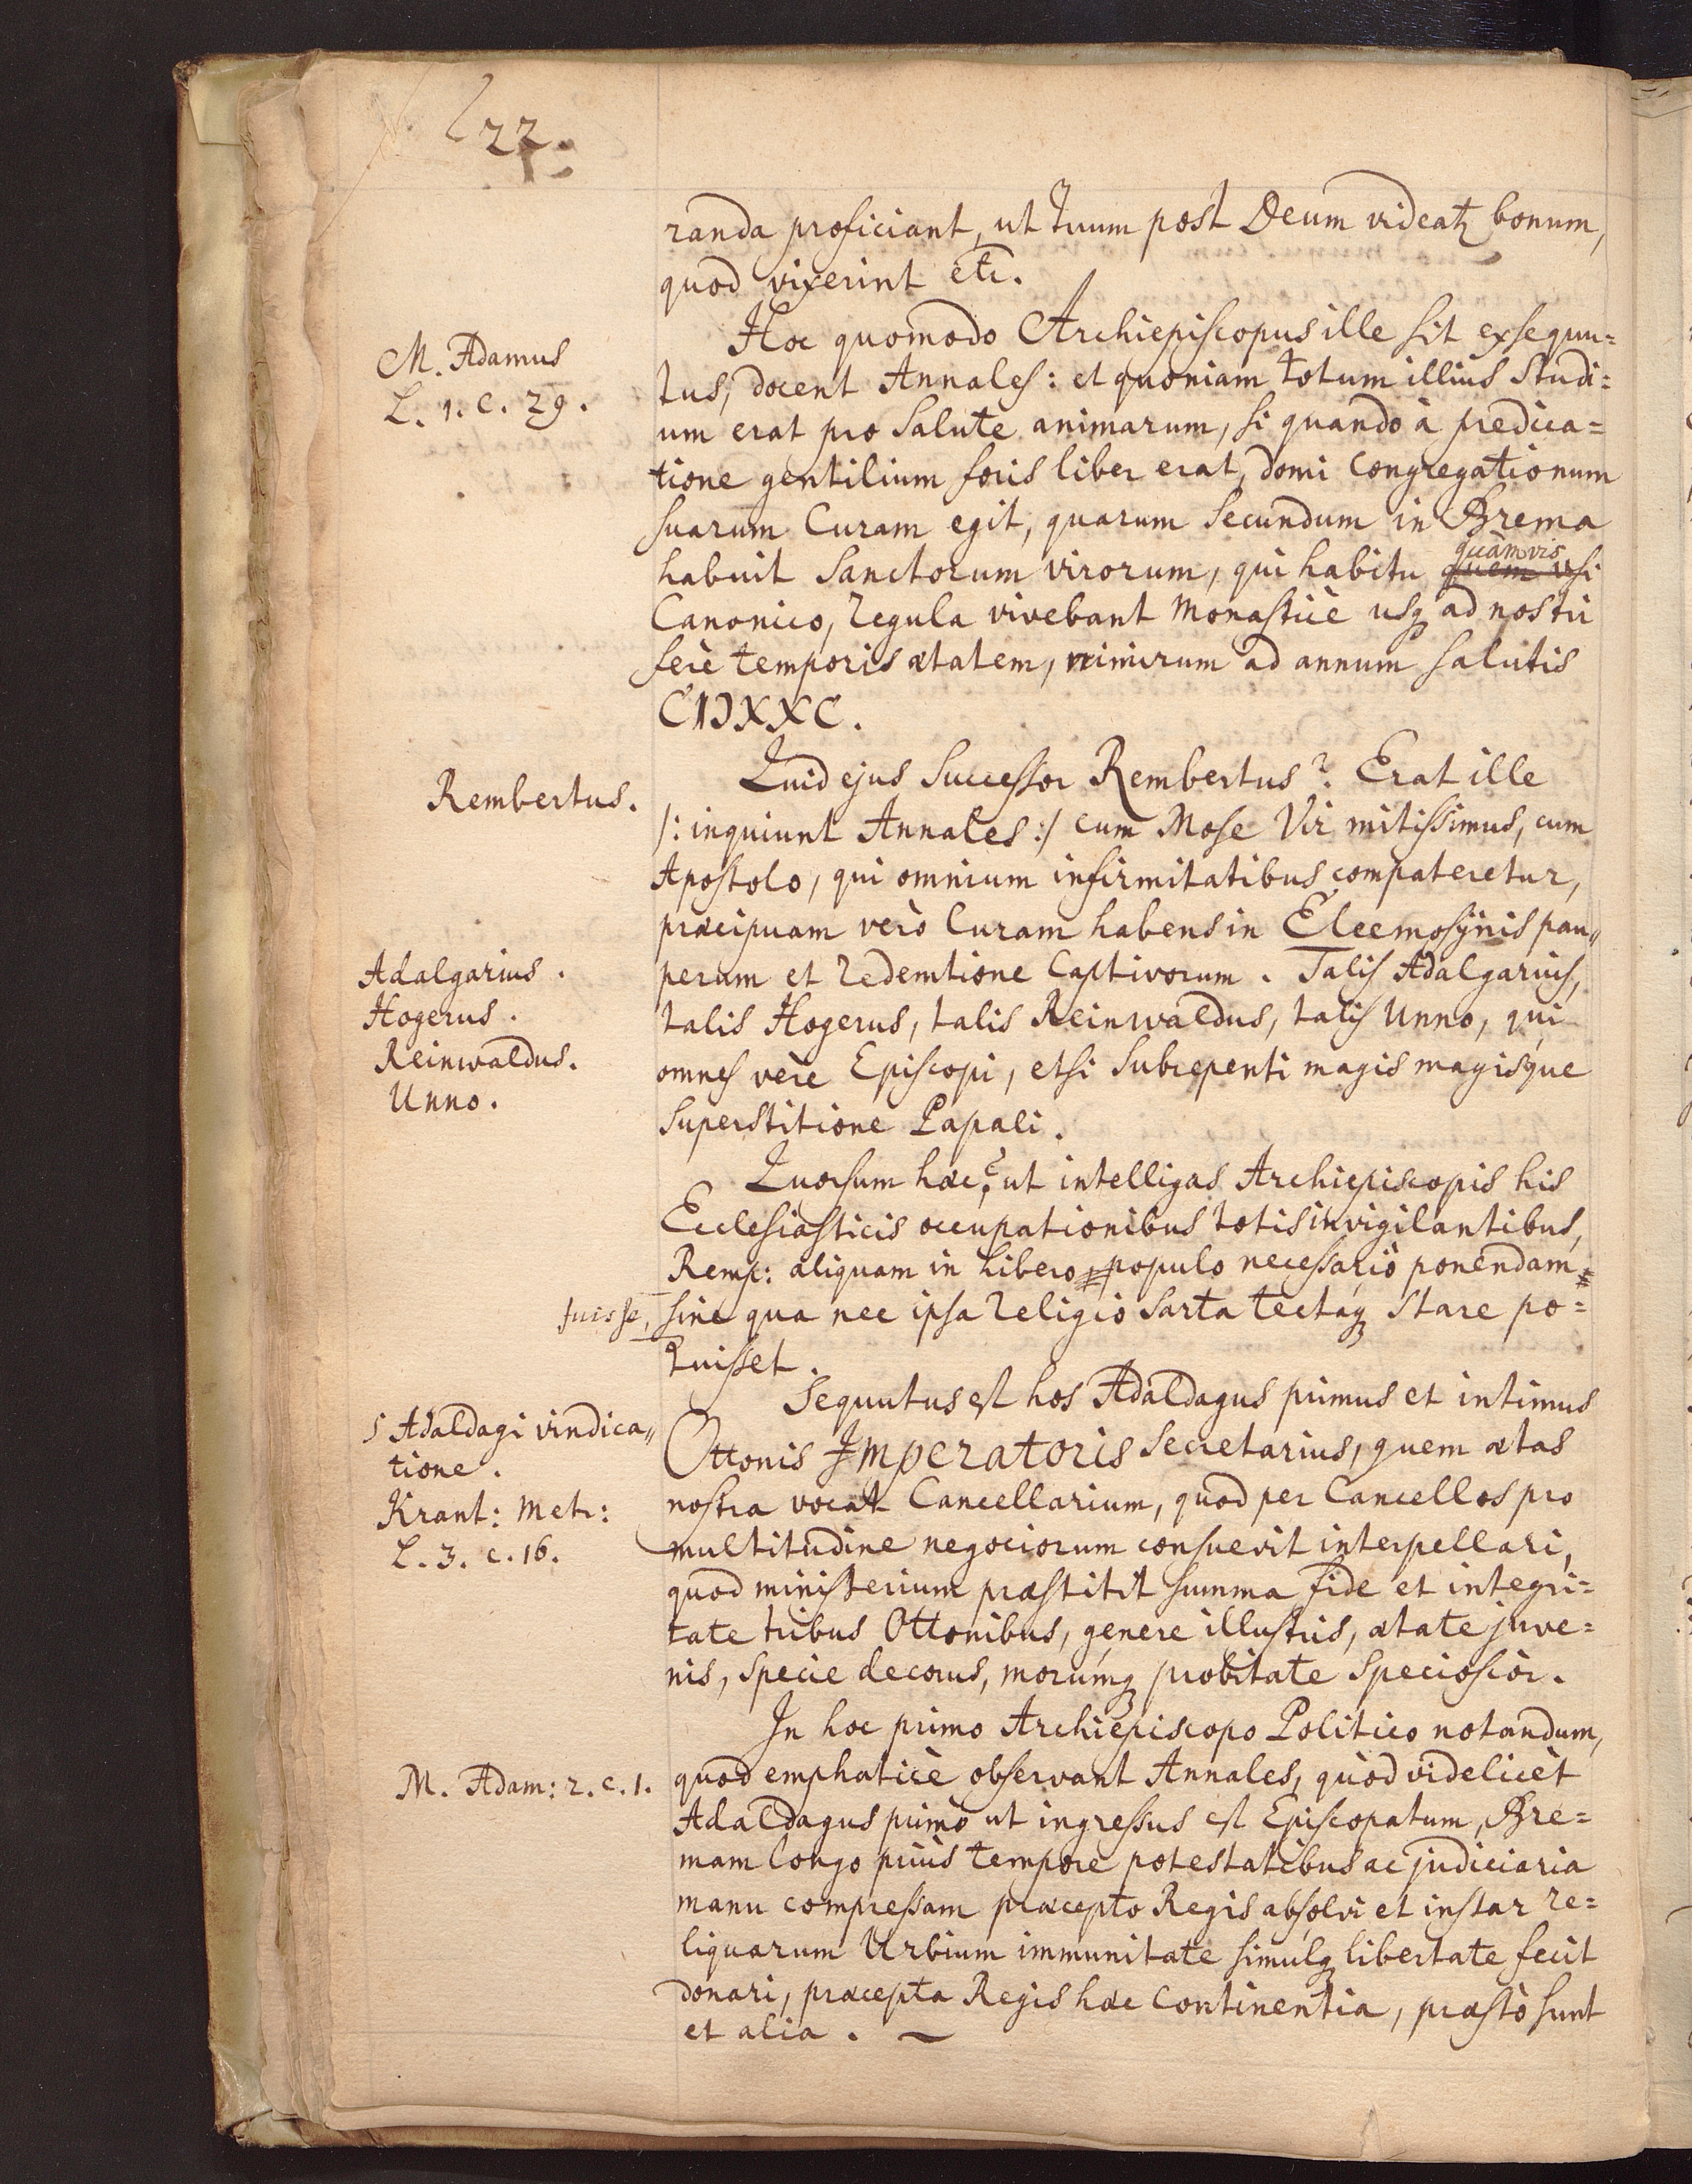 22.
randa proficiant, ut tuum post Deum videatꝫ bonum,
quod vixerint etc.
M. Adamus
L. 1. c. 29.
Hoc quomodo Archiepiscopus ille sit exsequu=
tus, docent Annales: et quoniam totum illius Studi=
um erat pro Salute animarum, si quando à predica=
tione gentilium foris liber erat, domi Congregationum
suarum Curam egit, quarum Secundum in Brema
habuit Sanctorum virorum, qui habitu quàmvis quem usi
Canonico, Regula vivebant Monasticè usqꝫ ad nostri
ferè temporis ætatem, nimirum ad annum salutis
CIƆXXC.
Rembertus.
Quid ejus Successor Rembertus? Erat ille
/: inquiunt Annales :/ cum Mose Vir mitissimus, cum
Apostolo, qui omnium infirmitatibus compateretur,
præcipuam verò Curam habens in Eleemosÿnis pau„
perum et Redemtione Captivorum. Talis Adalgarius,
Adalgarius.
Hogerus.
Reinwaldus.
Unno.
talis Hogerus, talis Reinwaldus, talis Unno, qui
omnes verè Episcopi, etsi Subrepenti magis magisque
Superstitione Papali.
Quorsum hæc? ut intelligas Archiepiscopis his
Ecclesiasticis occupationibus totis invigilantibus,
Remp: aliquam in libero populo necessariò ponendam
fuisse, sine qua nec ipsa Religio Sarta tectaqꝫ Stare po=
tuisset.
S Adaldagi vindica„
tione.
Krant: Metr:
L. 3. c. 16.
Sequutus est hos Adaldagus primus et intimus
Ottonis Imperatoris Secretarius, quem ætas
nostra vocat Cancellarium, quod per Cancellos pro
multitudine negociorum consuevit interpellari,
quod ministerium præstitit summa fide et integri=
tate tribus Ottonibus, genere illustris, ætate juve=
nis, Specie decorus, morumqꝫ probitate Speciosior.
In hoc primo Archiepiscopo Politico notandum,
M. Adam: 2. c. 1.
quod emphaticè observant Annales, quòd videlicèt
Adaldagus primò ut ingressus est Episcopatum, Bre=
mam longo priùs tempore potestatibus ac judiciaria
manu compressam præcepto Regis absolvi et instar re=
liquarum Urbium immunitate simulqꝫ libertate fecit
donari, præcepta Regis hæc Continentia, præstò sunt
et alia.